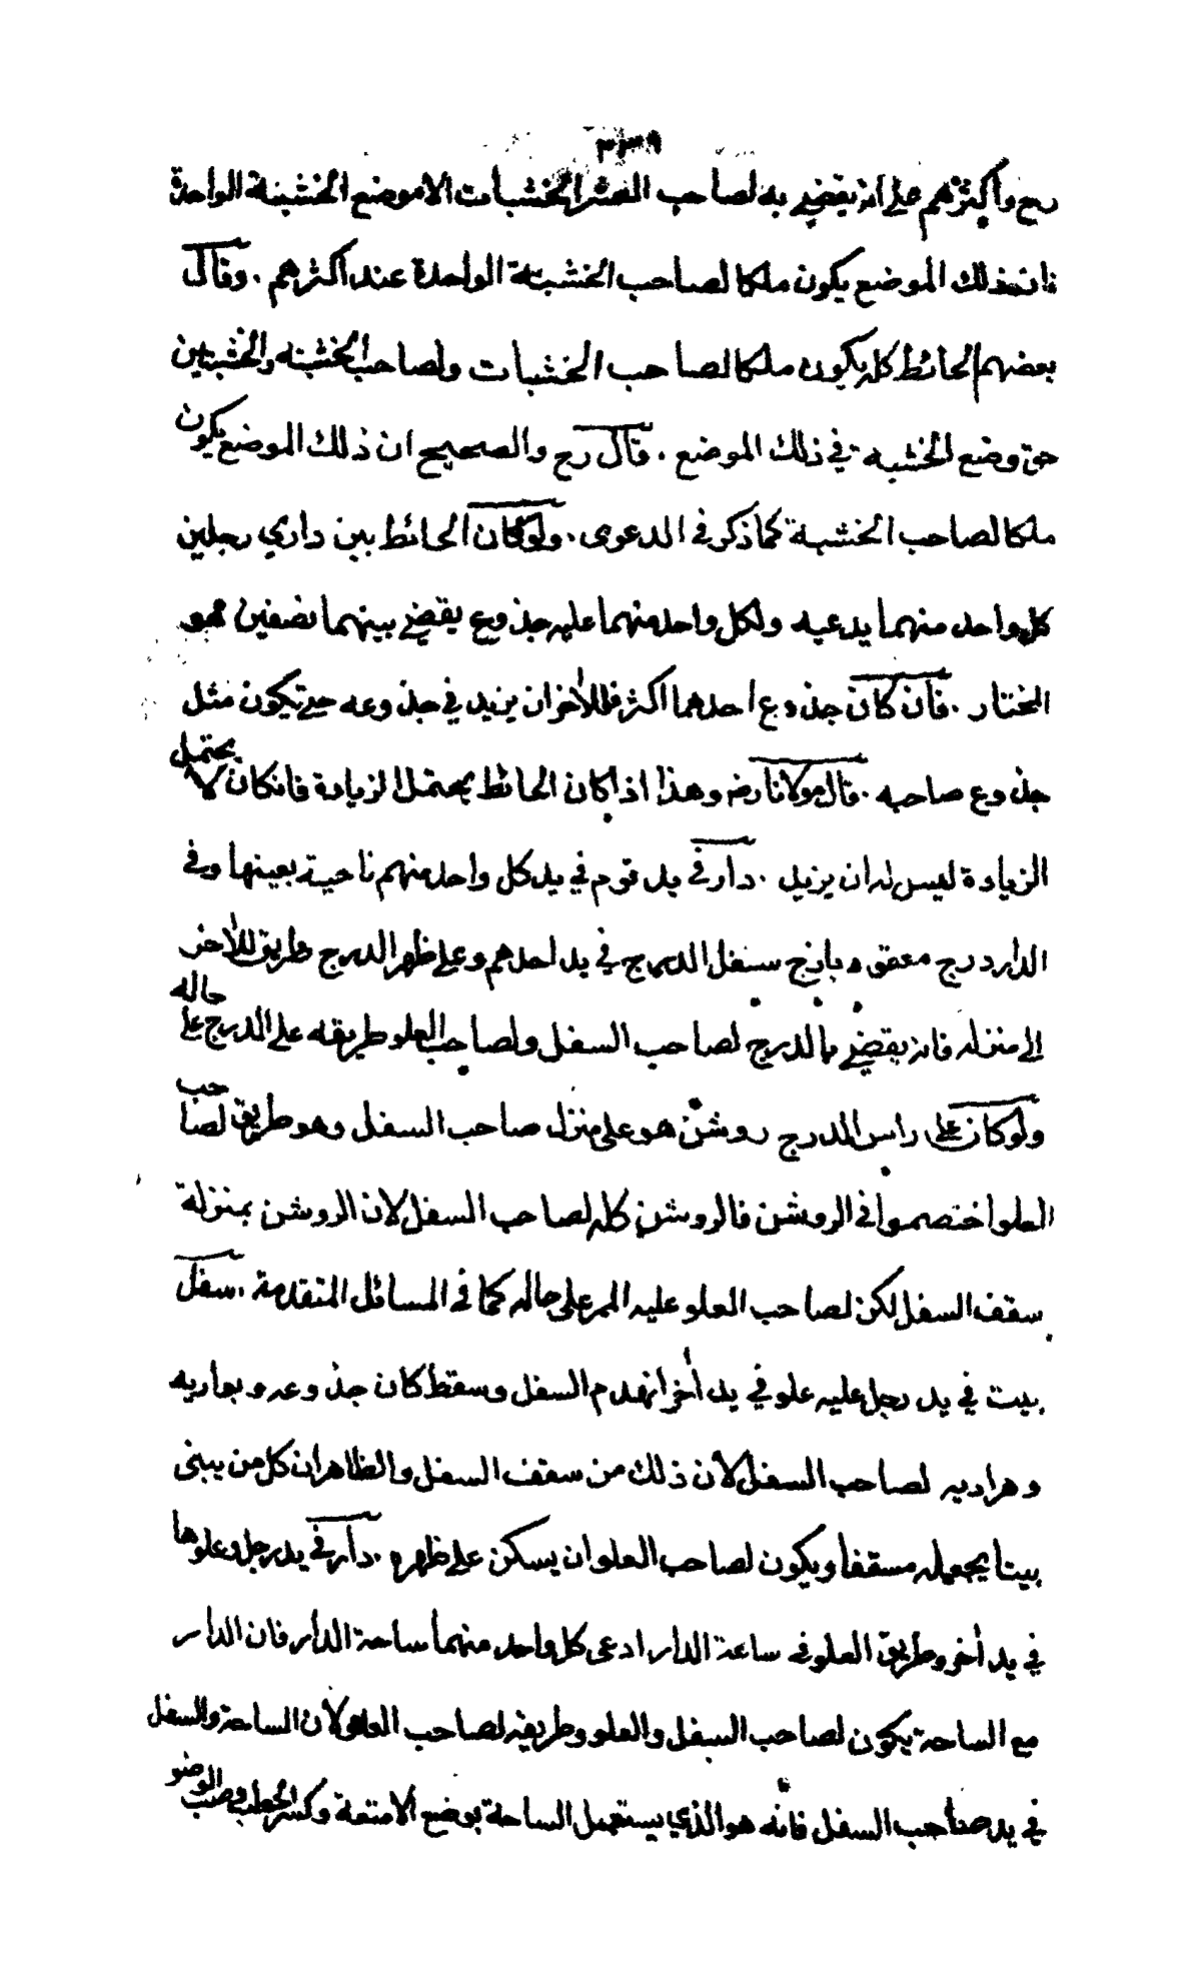 ٣٣٩
رح واكثرهم على انه يقضى به لصاحب العشر الخشبات الا موضع الخشبة الواحدة
فان ذلك الموضع يكون ملكا لصاحب الخشبة الواحدة عند اكثرهم . وقال
بعضهم الحائط كله يكون ملكا لصاحب الخشبات ولصاحب الخشبة والخشبتين
حق وضع الخشبة في ذلك الموضع . قال رح والصحيح ان ذلك الموضع يكون
ملكا لصاحب الخشبة كما ذكر في الدعوى . ولو كان الحائط بين داري رجلين
كل واحد منهما يدعيه ولكل واحد منهما عليه جذوع يقضى بينهما نصفين هو
المختار . فان كان جذوع احدهما اكثر فللآخر ان يزيد في جذوعه حتى تكون مثل
جذوع صاحبه . قال مولانا رضه وهذا اذا كان الحائط يحتمل الزيادة فان كان لا يحتمل
الزيادة ليس له ان يزيد . دار في يد قوم في يد كل واحد منهم ناحية بعينها وفي
الدار درج معقود بازج سفل الدرج في يد احدهم وعلى ظهر الدرج طريق للآخر
الى منزله فانه يقضى بالدرج لصاحب السفل ولصاحب العلو طريقه على الدرج على حاله
ولو كان على راس الدرج روشن هو على منزل صاحب السفل وهو طريق لصاحب
العلو اختصموا في الروشن فالروشن كله لصاحب السفل لان الروشن بمنزلة
سقف السفل لكن لصاحب العلو عليه الممر على حاله كما في المسائل المتقدمة . سفل
بيت في يد رجل عليه علو في يد آخر انهدم السفل وسقط كان جذوعه وبواريه
وهراديه لصاحب السفل لان ذلك من سقف السفل والظاهر ان كل من يبنى
بيتا يجعله مسقفا ويكون لصاحب العلو ان يسكن على ظهره . دار في يد رجل وعلوها
في يد آخر وطريق العلو في ساعة الدار ادعى كل واحد منهما ساحة الدار فان الدار
مع الساحة يكون لصاحب السفل والعلو وطريقه لصاحب العلو لان الساحة والسفل
في يد صاحب السفل فانه هو الذي يستعمل الساحة بوضع الامتعة وكسر الحطب وصب الوضو